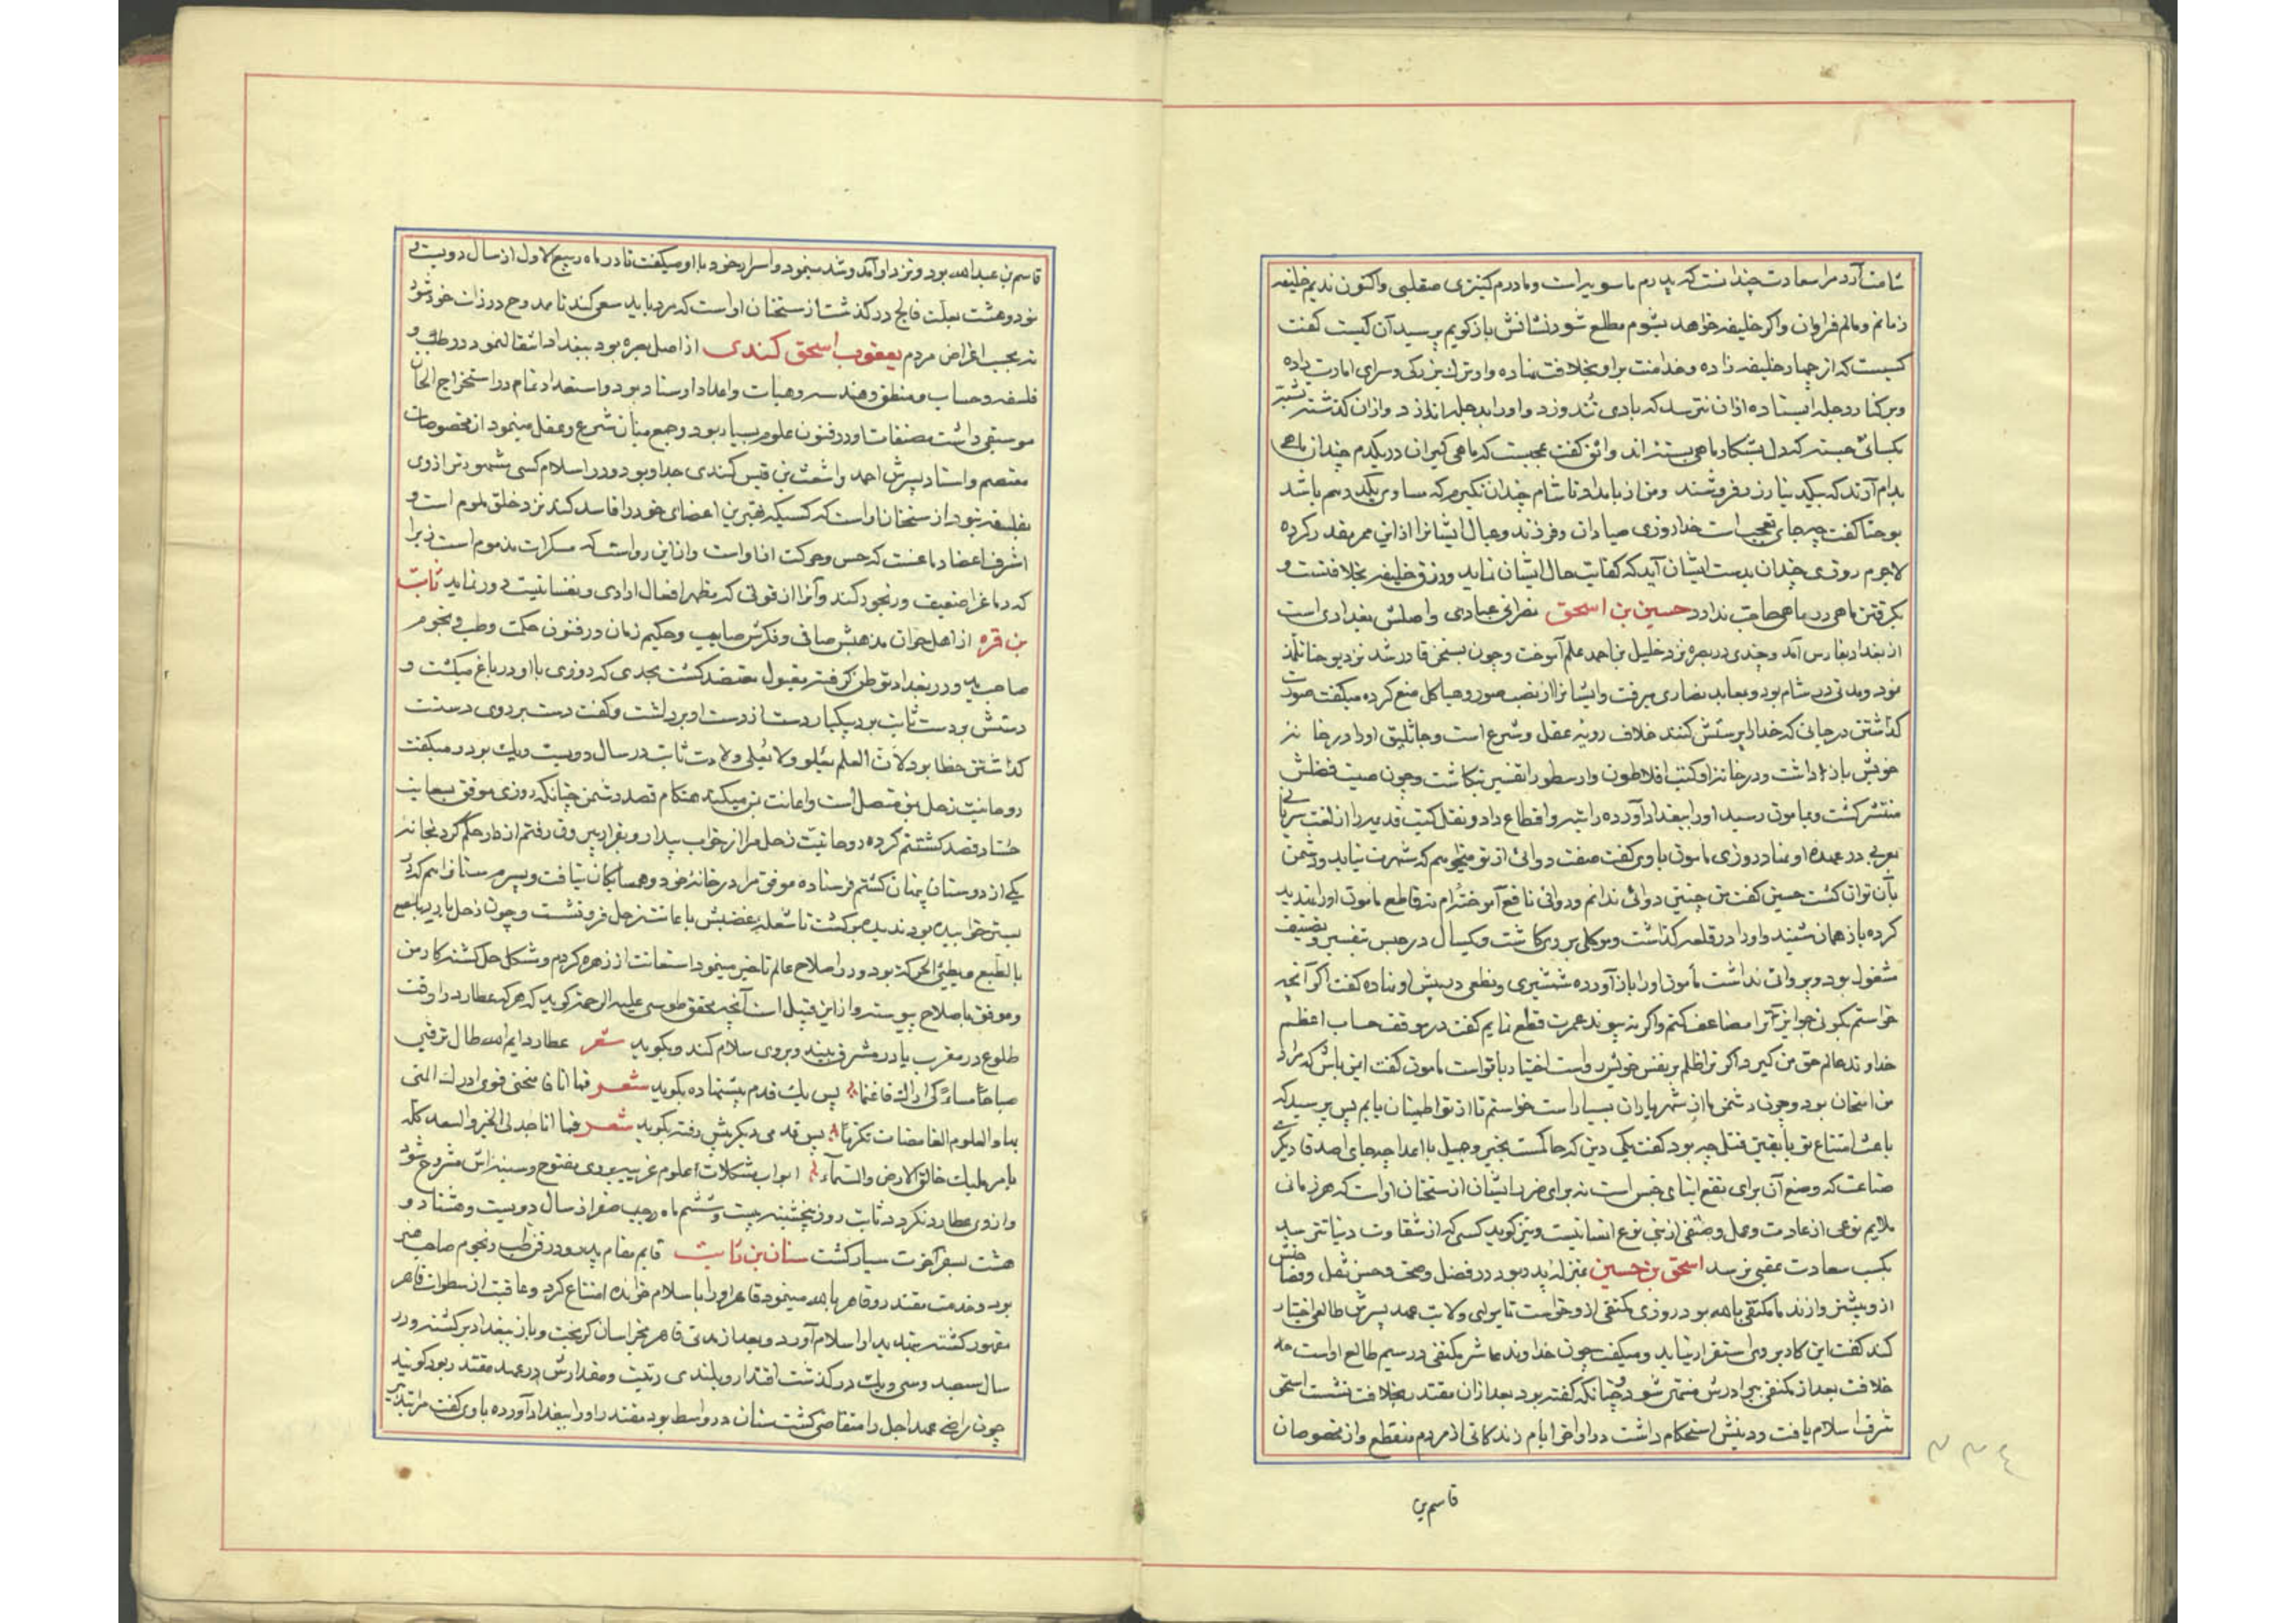 شامت آرد مرا سعادت چندانست که پدرم ماسویه است و مادرم کنیزی صقلبی و اکنون ندیم خلیفه
زمانم و مالم فراوان و اگر خلیفه خواهد بشوم مطلع شود نشانش باز گویم پرسید آن کیست گفت
کسیست که از چهار خلیفه زاده و خدا منت بر او بخلافت نهاده و او ترک بزرگی و سرای امارت داده
و بر کنار دجله ایستاده از آن نترسد که بادی تند وزد و او را بدجله اندازد و از آن گذشته تشبه
بکسانی جسته که دل بشکار ماهی بسته‌اند واثق گفت عجبست که ماهی گیران در یکدم چندان ماهی
بدام آرند که بیکدینار زر فروشند و من از بامداد تا شام چندان نگیرم که مساوی یکدرهم باشد
یوحنا گفت چه جای تعجب است خدا روزی صیادان و فرزند و عیال ایشانرا از این ممر مقدر کرده
لاجرم روزی چندان بدست ایشان آید که کفایت حال ایشان نماید و رزق خلیفه بخلافتست و
بگرفتن ماهی در ماهی حاجت ندارد حسین بن اسحق نصرانی عبادی و اصلش بغدادی است
از بغداد بفارس آمد و چندی در بصره نزد خلیل بن احمد علم آموخت و چون بسخن قادر شد نزد یوحنا تلمذ
نمود و مدتی در شام بود و بمعابد نصاری میرفت و ایشانرا از نصب صور و هیاکل منع کرده میگفت صورت
گذاشتن در جائی که خدا را پرستش کنند خلاف رویه عقل و شرع است و جاثلیق او را در خانه
خویش باز داشت و در خانه او کتب افلاطون و ارسطو را تفسیر نگاشت و چون صیت فضلش
منتشر گشت و بمامون رسید او را ببغداد آورده راتبه و اقطاع داد و نقل کتب قدیمه را از لغت سریانی
بعربی در عهده او نهاد روزی مامون باوی گفت صفت دوائی از تو میخواهم که شهرت نیابد و دشمن
بآن توان کشت حسین گفت من چنین دوائی ندانم و دوائی نافع آموخته‌ام نه قاطع مامون او را تهدید
کرده باز همان شنید و او را در قلعه گذاشت و موکلی بر وی گماشت و یکسال در حبس بتفسیر و تصنیف
مشغول بود و پروائی نداشت مأمون او را باز آورده شمشیری و نطعی در پیش او نهاده گفت اگر آنچه
خواستم بکوئی جوایز آنرا مضاعف کنم و اگر نه پیوند عمرت قطع نمایم گفت در موقف حساب اعظم
خداوند عالم حق من گیرد اگر ترا ظلم بر نفس خویش رواست اختیار با تواست مامون گفت ایمن باش که مراد
من امتحان بود و چون دشمن ما از شهریاران بسیار است خواستم تا از تو اطمینان یابم پس پرسید که
باعث امتناع تو با یقین قتل چه بود گفت یکی دین که حاکمست بخیر و جمیل با اعدا چه جای اصدقا دیگری
صناعت که وضع آن برای نفع ابنای جنس است نه برای ضرر ایشان از سخنان اوست که هر زمانی
ملایم نوعی از عادت و عمل و صنفی از بنی نوع انسانیست و نیز گوید کسی که از شقاوت دنیا نترسد
بکسب سعادت عقبی نرسد اسحق بن حسین بمنزله پدر بود در فضل و صحت و حسن نقل و فصاحتش
از وی بیشتر و از ندمای مکتفی بالله بود روزی مکتفی از و خواست تا برای ولایت عهد پسرش طالعی اختیار
کند گفت این کار بر وی استقرار نیابد و میگفت چون خداوند عاشر مکتفی در سیم طالع اوست
خلافت بعد از مکتفی ببرادرش منتهی شود و چنانکه گفته بود بعد از آن مقتدر بخلافت نشست اسحق
شرف اسلام یافت و دینش استحکام داشت در اواخر ایام زندگانی از مردم منقطع و از مخصوصان
قاسم بن
۲۲۴
قاسم بن عبدالله بود و نزد او آمد و شد مینمود و اسرار خود با او میگفت تا در ماه ربیع الاول از سال دویست و
نود و هشت بعلت فالج در گذشت از سخنان اوست که مرد باید سعی کند تا ممدوح در ذات خود شود
نه بحسب اغراض مردم یعقوب اسحق کندی از اصل بصره بود ببغداد انتقال نمود در طب و
فلسفه و حساب و منطق و هندسه و هیأت و اعداد اوستاد بود و استعداد تمام در استخراج الحان
موسیقی داشت مصنفات او در فنون علوم بسیار بود و جمع میان شرع و عقل مینمود از مخصوصان
معتصم و استاد پسرش احمد و اشعث بن قیس کندی جد او بود و در اسلام کسی مشهورتر از وی
بفلسفه نبود از سخنان اوست که کسیکه بهترین اعضای خود را فاسد کند نزد خلق ملوم است و
اشرف اعضا دماغست که حس و حرکت از اوست و از این رو است که مسکرات مذموم است زیرا
که دماغ را ضعیف و رنجور کند و آنرا از قوتی که مظهر افعال ارادی و نفسانیست دور نماید ثابت
بن قره از اهل حران مذهبش صافی و فکرش صایب و حکیم زمان در فنون حکمت و طب و نجوم
صاحب ید و در بغداد توطن گرفته مقبول معتضد گشت بحدی که روزی با او در باغ میگشت و
دستش بر دست ثابت بود یکبار دست از دست او برداشت و گفت دست بر روی دستت
گذاشتن خطا بود لان العلم یعلو ولا یعلی ولادت ثابت در سال دویست و یک بود و میگفت
روحانیت زحل بمن متصل است و اعانت من میکند هنگام قصد دشمن چنانکه روزی موفق بسعایت
حساد قصد کشتنم کرده روحانیت زحل مرا از خواب بیدار و بفرار بیرون رفتم از دار حکم کرد بخانه
یکی از دوستان پنهان گشتم فرستاده موفق مرا در خانه خود و همسایگان نیافت و پسرم سنان را هم که در
بستر خوابیده بود ندیده برگشت تا شعله غضبش باعانت زحل فرو نشست و چون زحل
بالطبع و بطیئ الحرکة بود و در اصلاح عالم تاخیر مینمود استعانت از زهره کردم و مشکل حل گشته کار من
و موفق باصلاح پیوسته و از این قبیل است آنچه محقق طوسی علیه الرحمه گوید که هر که عطارد را وقت
طلوع در مغرب یا در مشرق بیند و بروی سلام کند و بگوید شعر عطارد ایم الله طال ترقبی
صباحا مساء کی اراک فاغنما پس یک قدم پیش نهاده بگوید شعر فها انا فامنحنی قوی ادرک المنی
بها والعلوم الغامضات تکرما پس قدمی دیگر پیش رفته بگوید شعر فها انا جدلی الخیر والسعد کله
بامر ملیک خالق الارض والسماء ابواب مشکلات علوم غریبه بروی مفتوح و سینه‌اش مشروح شود
و از وی عطارد نگردد ثابت روز پنجشنبه بیست و ششم ماه صفر از سال دویست و هشتاد و
هشت بسفر آخرت سیار گشت سنان بن ثابت قایم مقام پدر و در فن طب و نجوم صاحب خبر
بود و خدمت مقتدر و قاهر بالله مینمود قاهر او را باسلام خوانده امتناع کرد و عاقبت از سطوات قاهر
مقهور گشته بتهدید او اسلام آورد و بعد از مدتی قاهر بخراسان گریخت و باز ببغداد برگشته و در
سال سیصد و سی و یک در گذشت اقتدار و بلندی رتبت و مقدارش در عهد مقتدر بود گویند
چون راضی عهد اجل را متقاضی گشت سنان در واسط بود مقتدر او را ببغداد آورده باوی گفت مرا تدبیر